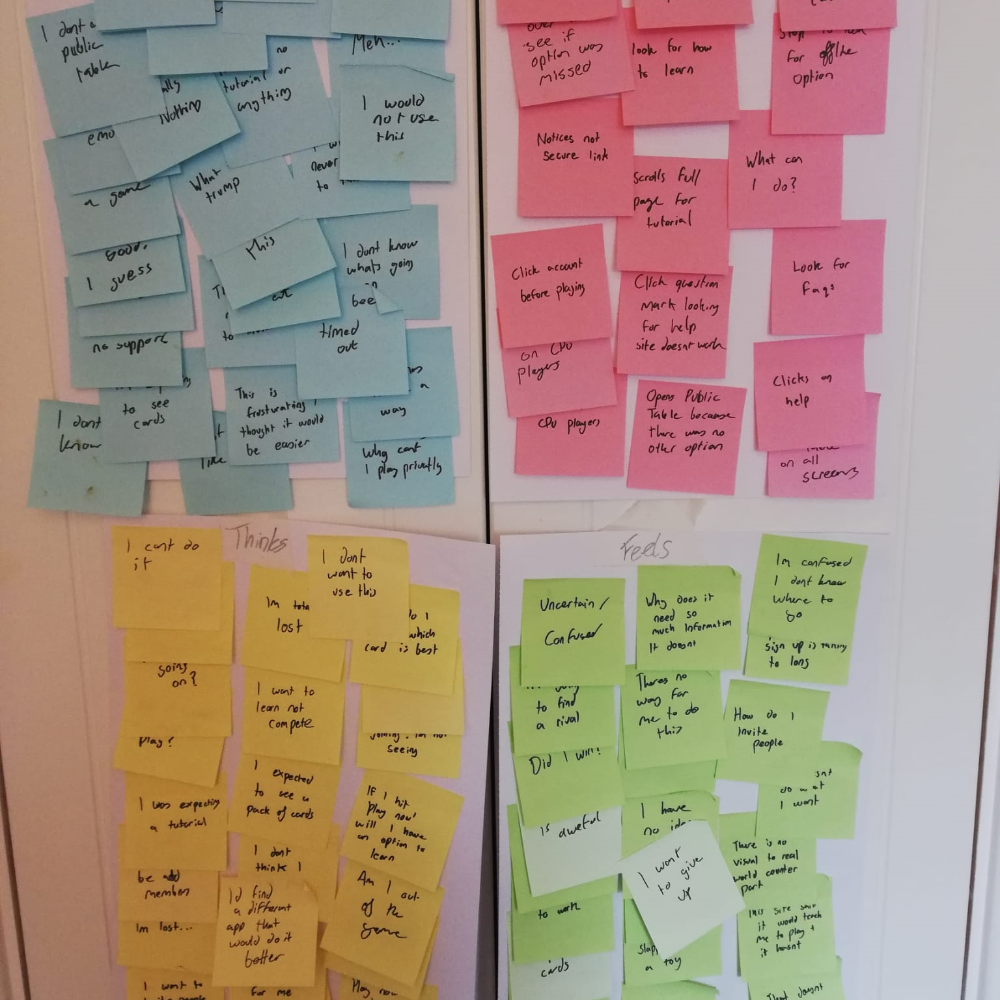 I dont a
public
table
Nothing
no
tutorial or
anything
Meh...
I would
not use
this
emo
a game
What
trump
never
to
good.
I guess
this
I dont know
whats going
out
timed
out
no support
to see
cards
I dont
know
This is
frusturating I
thought it would
be easier
like
way
Why cant
I play privatly
over
see if
option was
missed
look for how
to learn
Stop to look
for offline
option
Notices not
secure link
What can
I do?
Scrolls full
page for
tutorial
Click account
before playing
Click question
mark looking
for help
site doesnt work
Look for
faqs
on CPU
players
CPU players
Opens Public
Table because
there was no
other option
Clicks on
help
on all
screens
Thinks
I cant do
it
Im
lost
I dont
want to
use this
which
card is best
going
on?
I want to
learn not
compete
seeing
Play?
I expected
to see a
pack of cards
I was expecting
a tutorial
If I hit
play now
will I have
an option to
learn
I dont
think I
be
member
Am I out
of the
game
Im lost...
Id find
a different
app that
would do it
better
I want to
for me
Feels
Uncertain/
Confused
Why does it
need so
much information
It doesnt
Im confused
I dont know
where to
go
sign up is
to long
to find
a rival
Theres no
way for
me to do
this
How do I
Invite
people
Did I win?
I want
is aweful
I have
no idea
I want
to give
up
There is no
visual to real
world counter
part
to work
this site said
it would teach
me to play +
it hasnt
cards
a toy
That doesnt